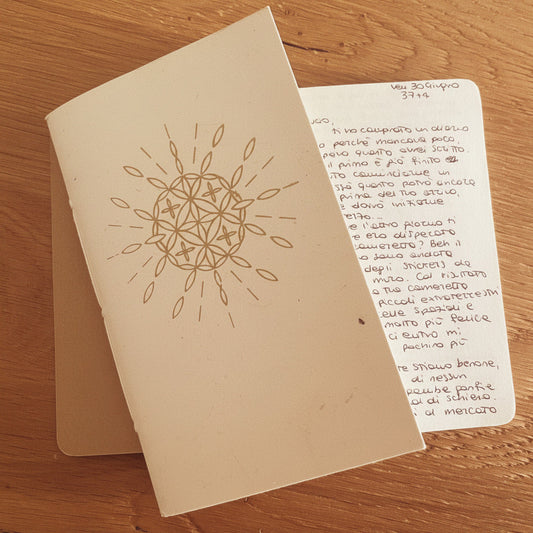 Ven 30 Giugno
37+4
ti ho comprato un diario
perché mancava poco,
quanto avrei scritto.
il primo è già finito
cominciarne un
quanto potrò ancora
prima del tuo arrivo,
dovrò iniziarne
terzo...
l'altro giorno ti
ero disperato
cameretta? Beh il
sono andato
degli stickers da
muro. Col risultato
tua cameretta
piccoli extraterrestri
spaziali e
molto più felice
ci entro mi
pochino più
stiamo benone,
di nessun
partire
di schiena.
al mercato